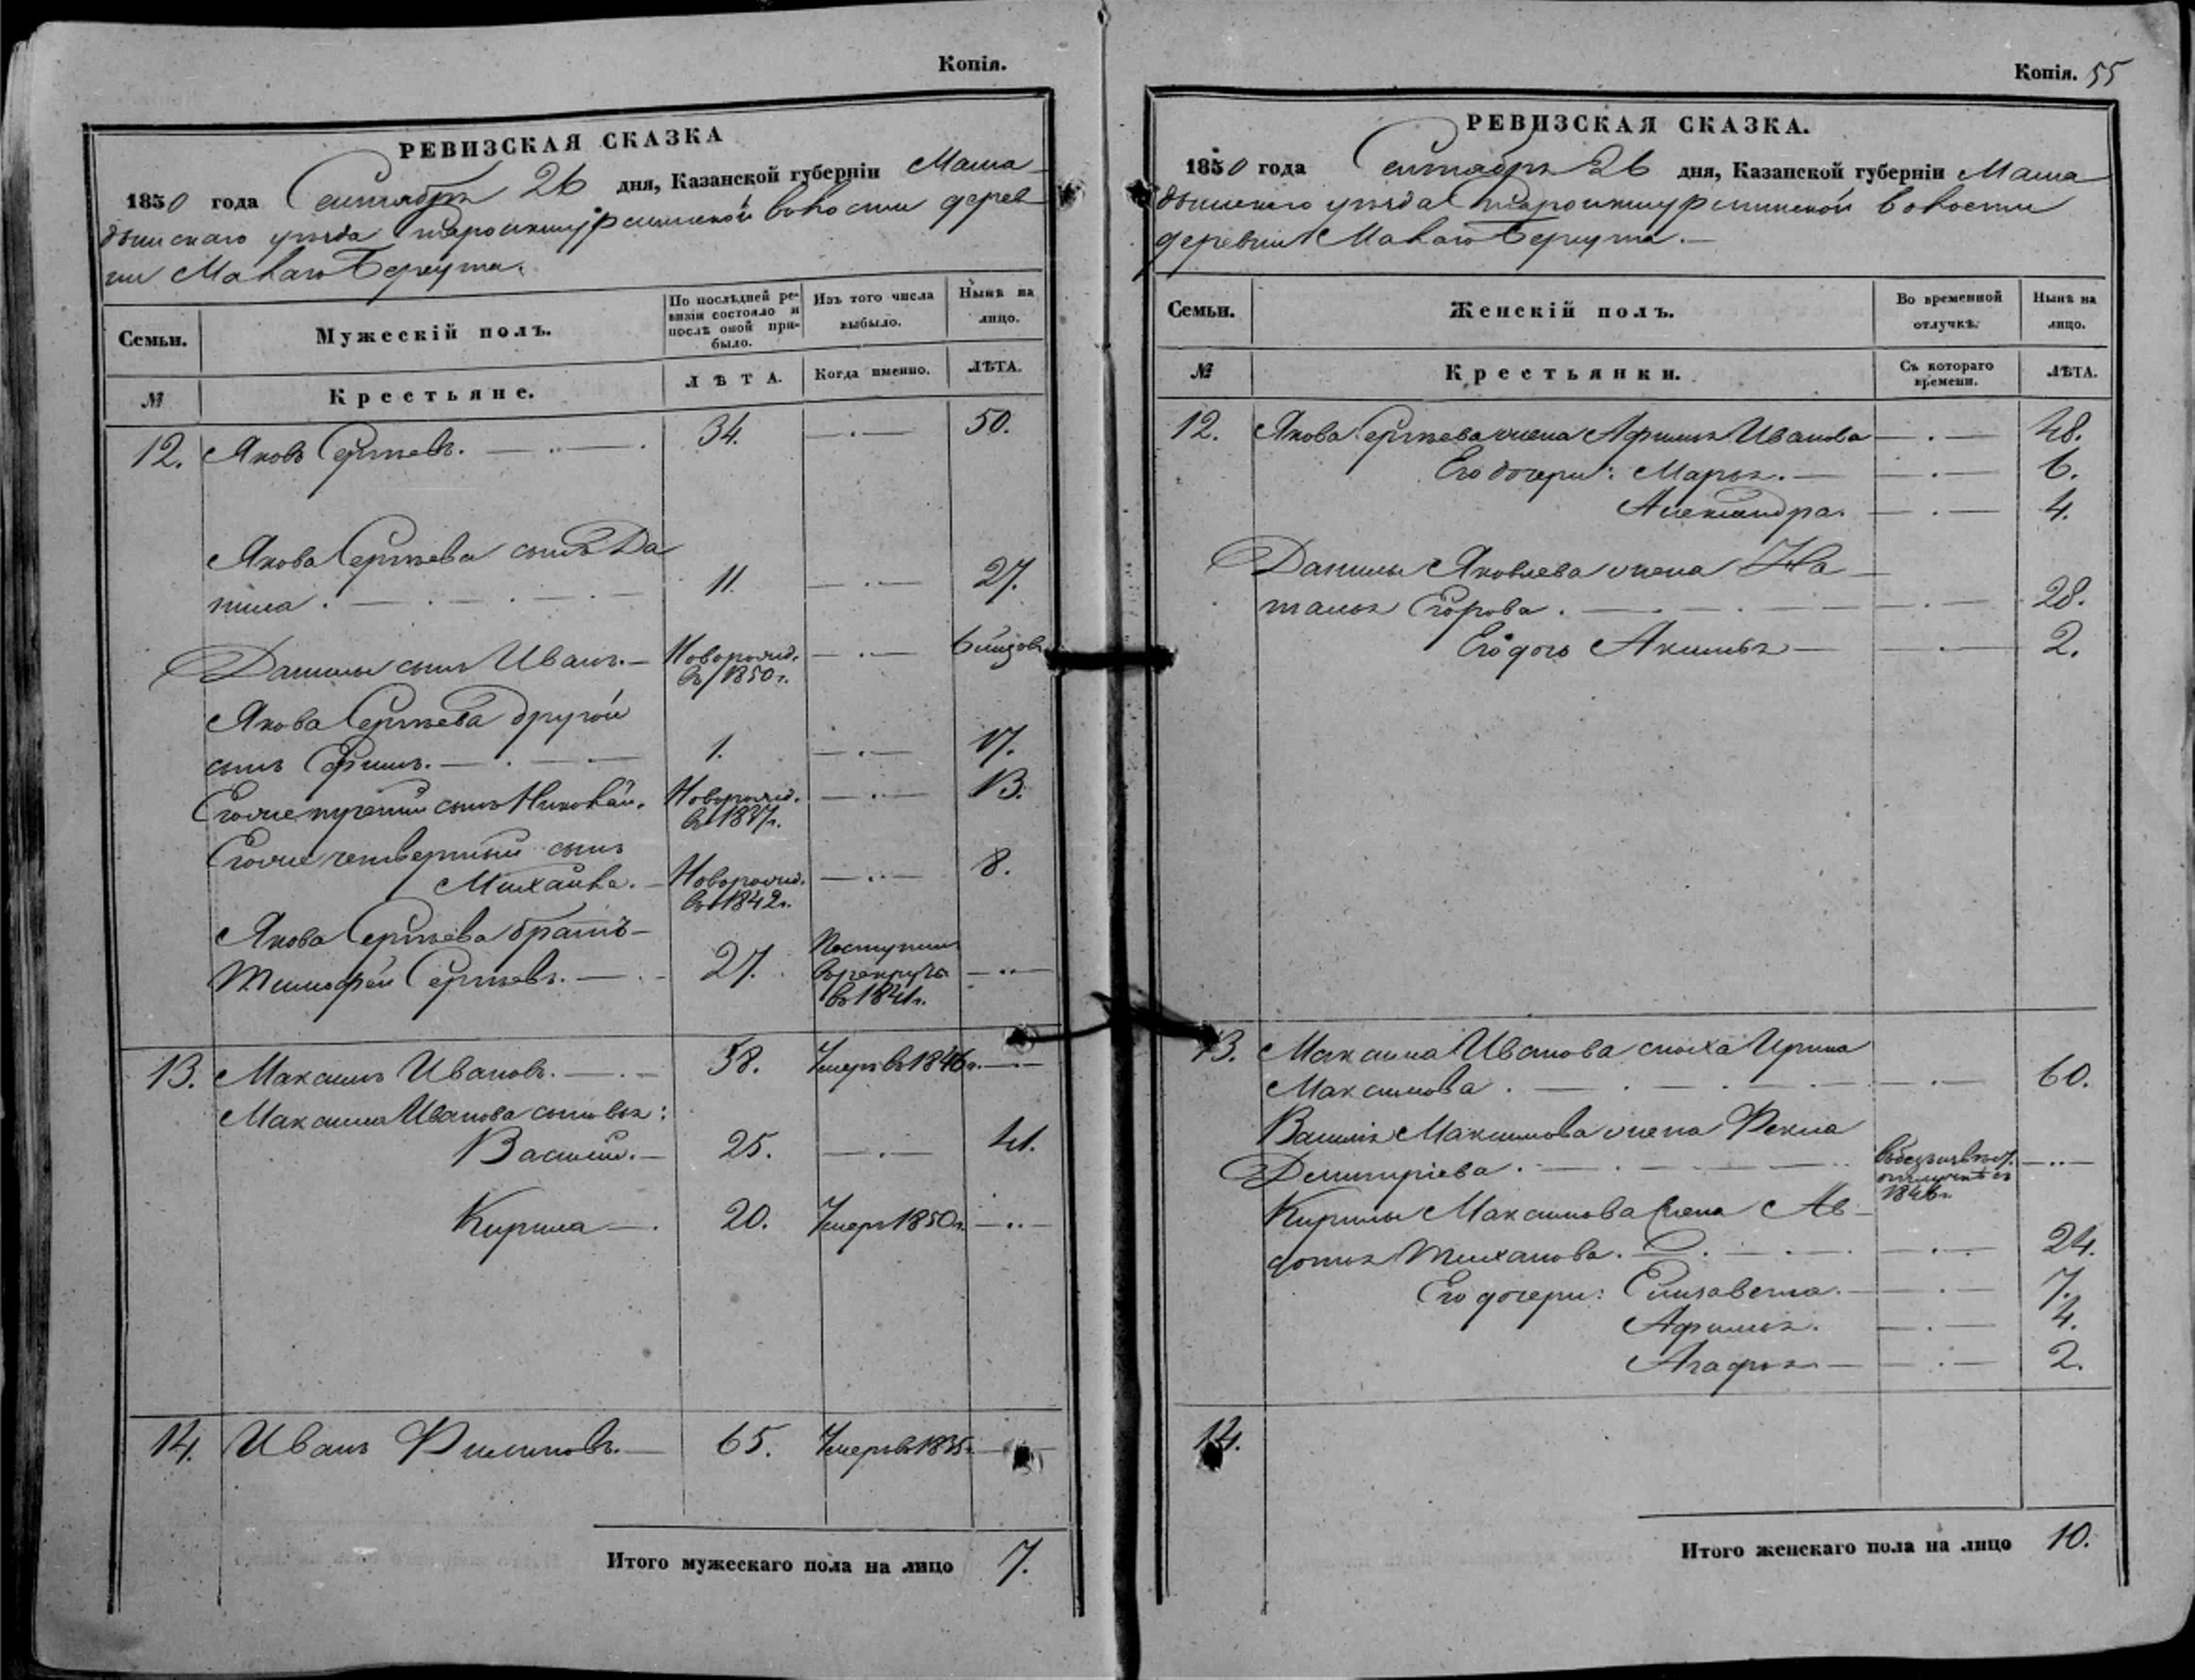 Копія.
РЕВИЗСКАЯ СКАЗКА
1850 года Сентября 26 дня, Казанской губерніи Мама
дышскаго уѣзда волости дерев
ни Малаго Беркута.
Семьи.
Мужескій полъ.
По послѣдней ре-
визіи состояло и
послѣ оной при-
было.
Изъ того числа
выбыло.
Нынѣ на
лицо.
№
Крестьяне.
ЛѢТА.
Когда именно.
ЛѢТА.
12. Яковъ Сергѣевъ. 34. 50.
Якова Сергѣева сынъ Да
нила. 11. 27.
Данилы сынъ Иванъ. Новорожд. 6 мѣсцов.
въ 1850 г.
Якова Сергѣева другой
сынъ Ефимъ. 1. 17.
Егоже третій сынъ Николай. Новорожд. 13.
въ 1837 г.
Егоже четвертый сынъ
Михайла. Новорожд. 8.
въ 1842 г.
Якова Сергѣева братъ
Тимофей Сергѣевъ. 27. Поступилъ
въ рекруты
въ 1841 г.
13. Максимъ Ивановъ. 58. Умеръ въ 1846 г.
Максима Иванова сыновья:
Василій. 25. 41.
Кирила 20. Умеръ 1850 г.
14. Иванъ Филиповъ. 65. Умеръ въ 1835 г.
Итого мужескаго пола на лицо 7.
Копія. 55
РЕВИЗСКАЯ СКАЗКА.
1850 года Сентября 26 дня, Казанской губерніи Мама
дышскаго уѣзда волости
деревни Малаго Беркута.
Семьи.
Женскій полъ.
Во временной
отлучкѣ.
Нынѣ на
лицо.
№
Крестьянки.
Съ котораго
времени.
ЛѢТА.
12. Якова Сергѣева жена Афимья Иванова 48.
Его дочери: Марья. 6.
Александра. 4.
Данилы Яковлева жена На
талья Егорова. 28.
Его дочь Акилина 2.
13. Максима Иванова сноха Ирина
Максимова. 60.
Василья Максимова жена Фекла
Дмитріева. въ безъизвѣст.
отлучкѣ съ
1846 г.
Кирилы Максимова жена Ав
дотья Тиханова. 24.
Его дочери: Елизавета. 7.
Афимья. 4.
Агафья 2.
14.
Итого женскаго пола на лицо 10.